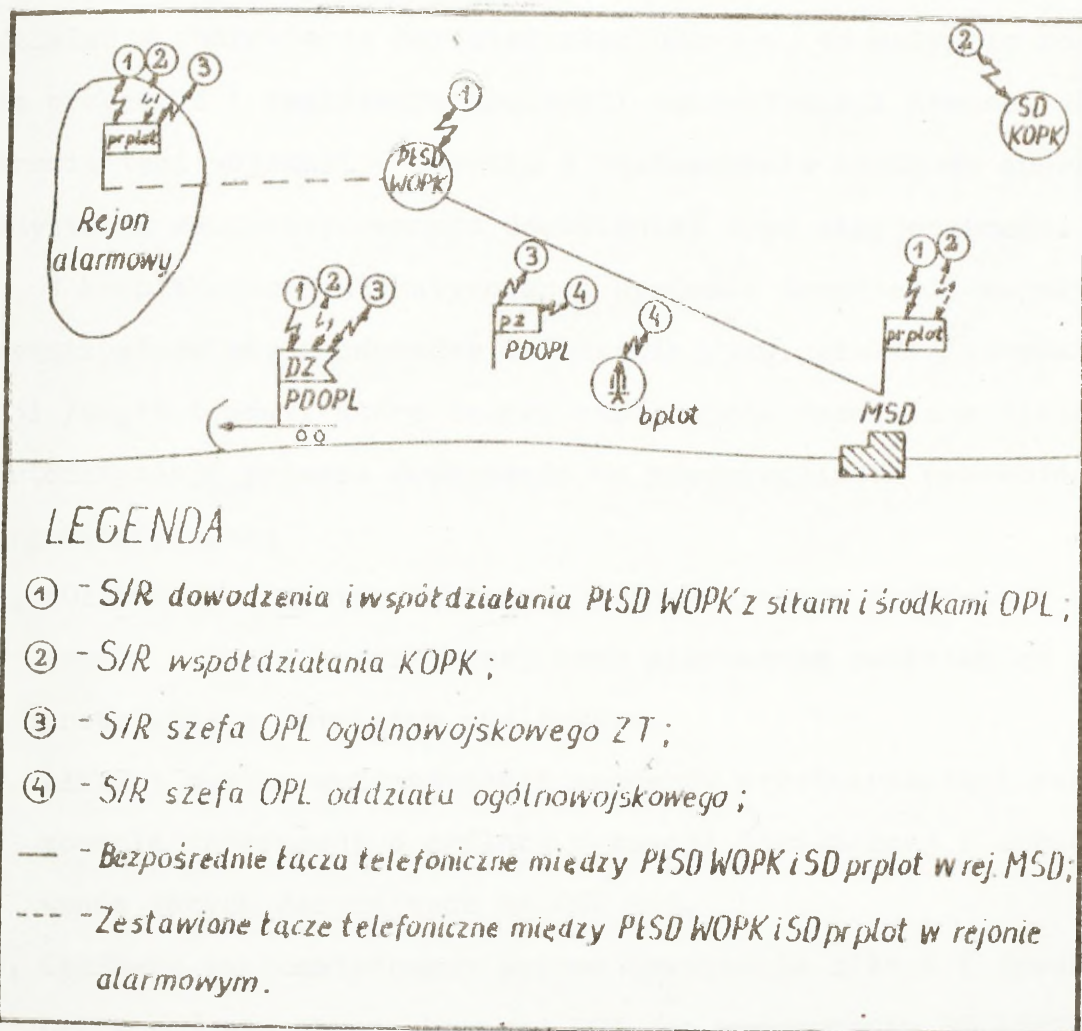 1 2 3
2
1
prplot
SD
KOPK
PŁSD
WOPK
Rejon
alarmowy
3
1 2
1 2 3
4
pz
4
prplot
PDOPL
DZ
PDOPL
bplot
MSD
LEGENDA
1 - S/R dowodzenia i współdziałania PŁSD WOPK z siłami i środkami OPL;
2 - S/R współdziałania KOPK;
3 - S/R szefa OPL ogólnowojskowego ZT;
4 - S/R szefa OPL oddziału ogólnowojskowego;
— - Bezpośrednie łącza telefoniczne między PŁSD WOPK i SD prplot w rej. MSD;
--- - Zestawione łącze telefoniczne między PŁSD WOPK i SD prplot w rejonie
alarmowym.